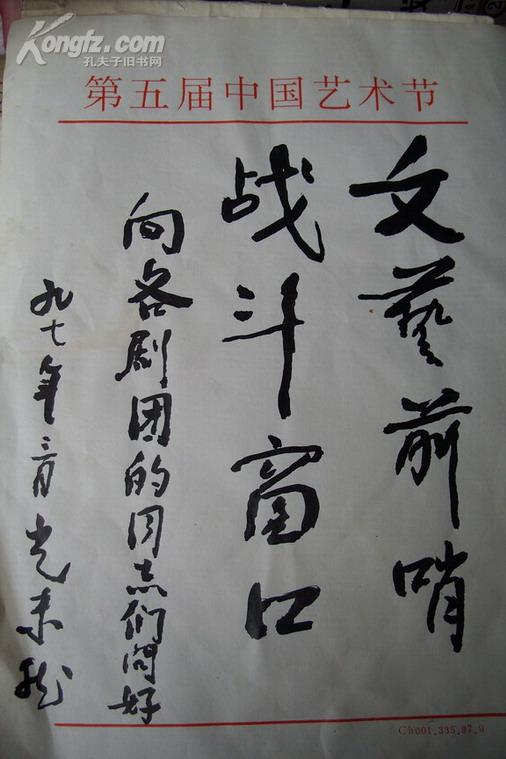 Kongfz.com
孔夫子旧书网
第五届中国艺术节
文藝前哨
战斗窗口
向各剧团的同志们问好
九七年三月光未然
Ch001.335.97.9